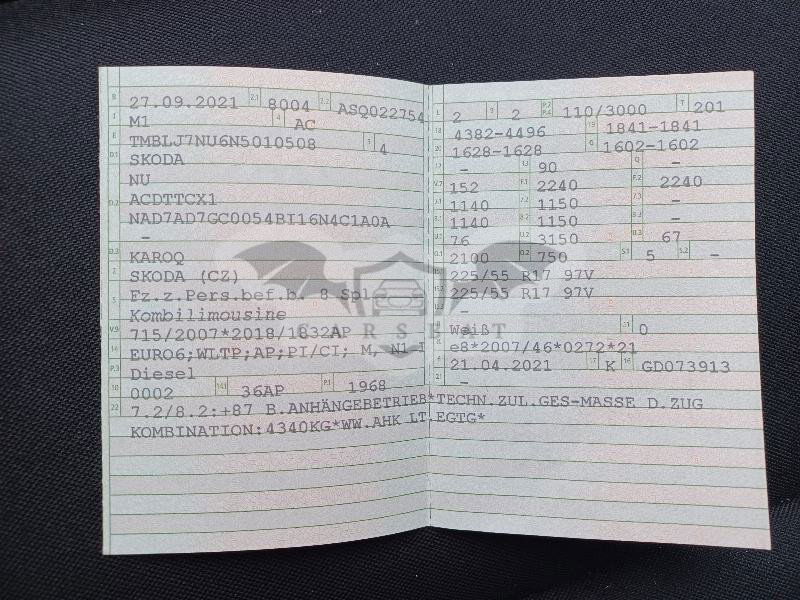 B 27.09.2021 2.1 8004 2.2 ASQ022754
J M1 4 AC
E TMBLJ7NU6N5010508 3 4
D.1 SKODA
NU
D.2 ACDTTCX1
NAD7AD7GC0054BI16N4C1A0A
–
D.3 KAROQ
2 SKODA (CZ)
5 Fz.z.Pers.bef.b. 8 Spl
Kombilimousine
V.9 715/2007*2018/1832AP
14 EURO6;WLTP;AP;PI/CI; M, N1 I
P.3 Diesel
10 0002 14.1 36AP P.1 1968
L 2 9 2 P.2 P.4 110/3000 T 201
18 4382–4496 19 1841–1841
20 1628–1628 G 1602–1602
12 – 13 90 Q –
V.7 152 F.1 2240 F.2 2240
7.1 1140 7.2 1150 7.3 –
8.1 1140 8.2 1150 8.3 –
U.1 76 U.2 3150 U.3 67
O.1 2100 O.2 750 S.1 5 S.2 –
15.1 225/55 R17 97V
15.2 225/55 R17 97V
–
Weiß 11 0
K e8*2007/46*0272*21
6 21.04.2021 17 K 16 GD073913
21 –
22 7.2/8.2:+87 B.ANHÄNGEBETRIEB*TECHN.ZUL.GES-MASSE D.ZUG
KOMBINATION:4340KG*WW.AHK LT.EGTG*